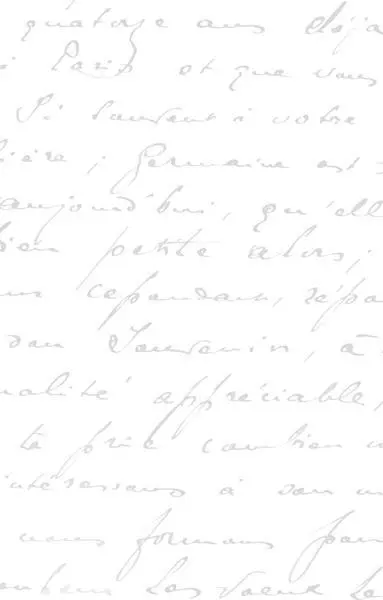 quatorze ans déja
Paris et que vous
si souvent à votre
ière ; Germaine est
aujourd'hui, qu'elle
bien petite alors ;
cependant, répa
Souvenir, à
nalité appréciable,
te prie combien
intéressans à
nous formons pour